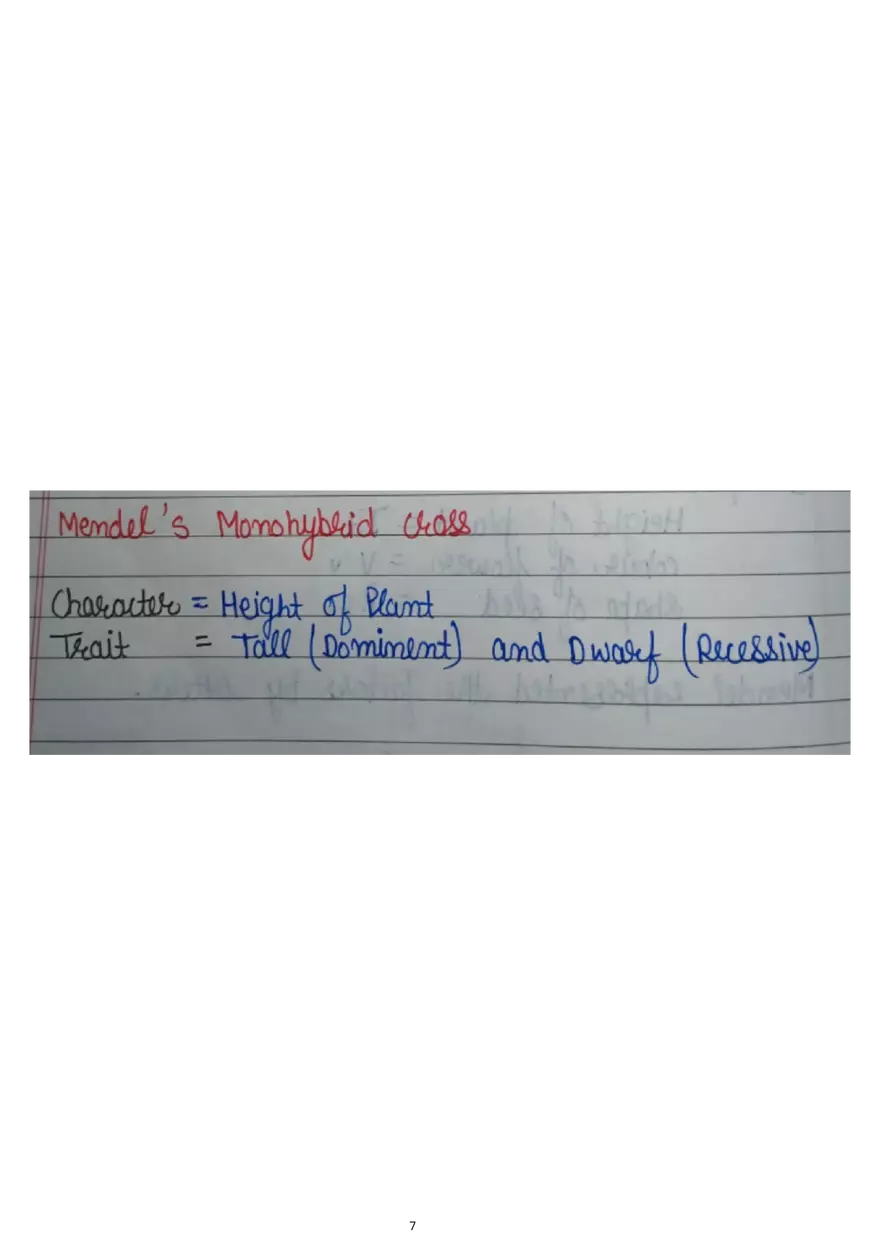 Mendel's Monohybrid Cross
Character = Height of Plant
Trait = Tall (Dominent) and Dwarf (Recessive)
7